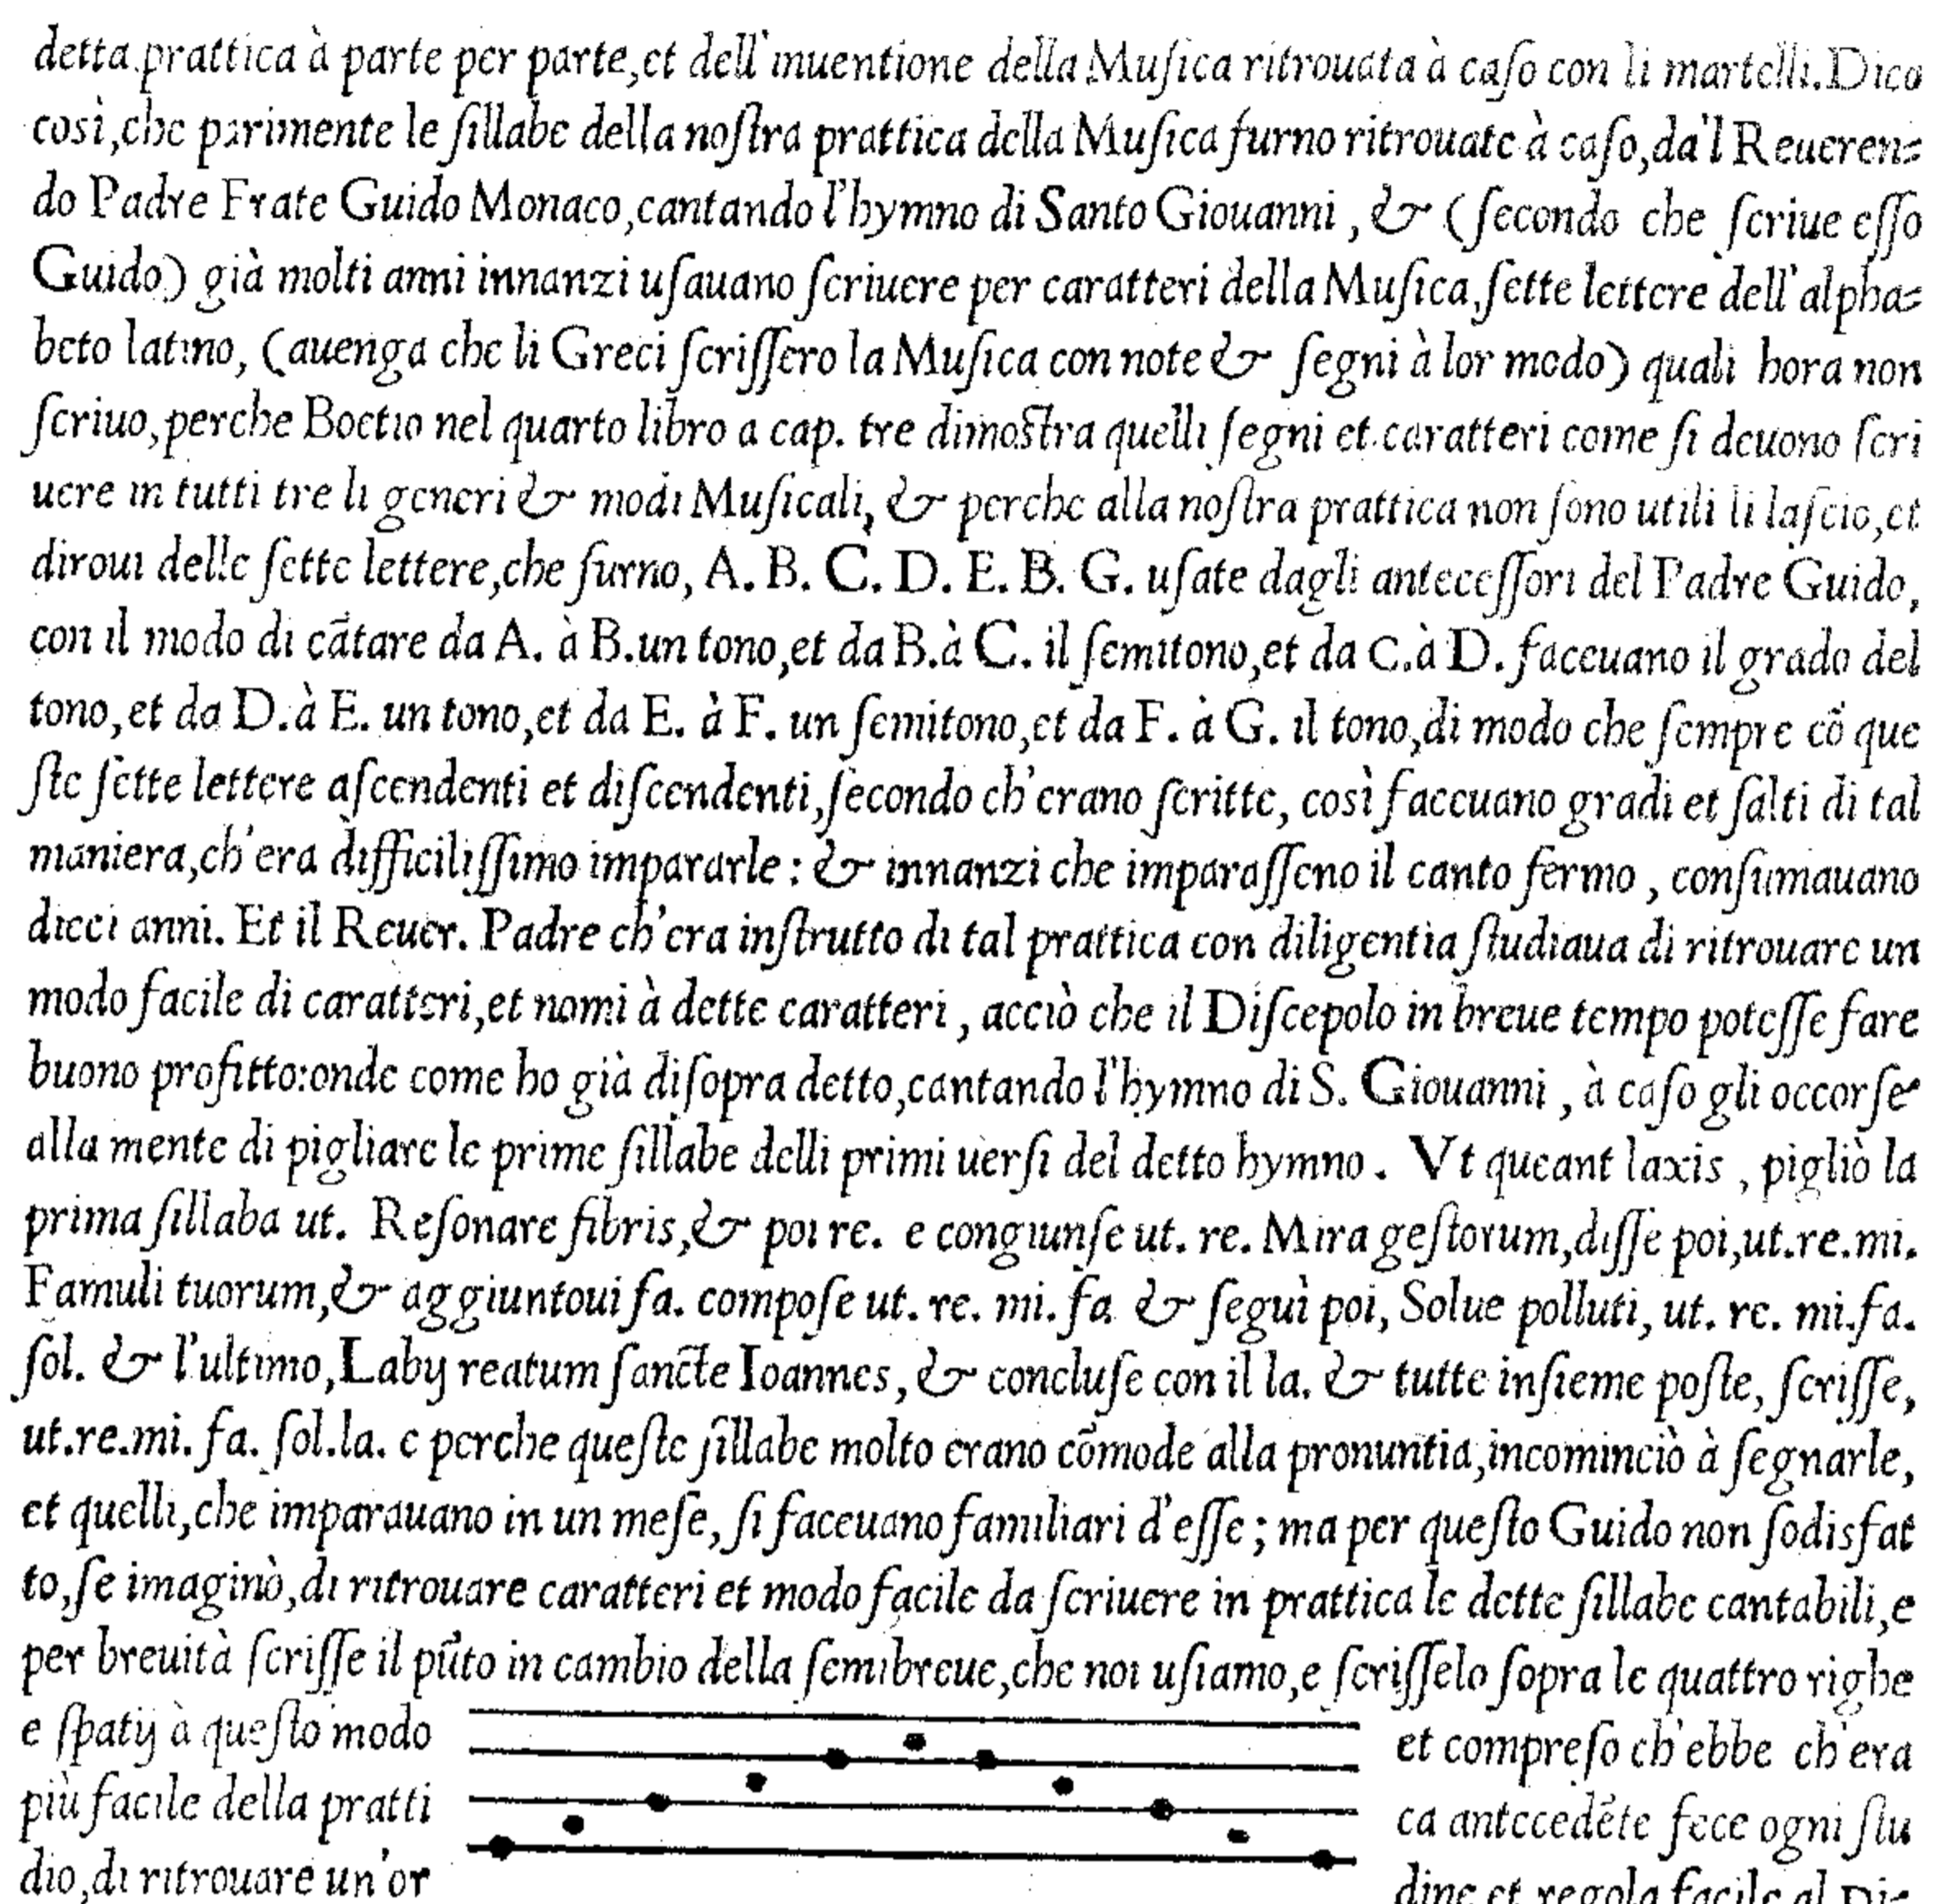 detta prattica à parte per parte,et dell'inuentione della Muſica ritrouata à caſo con li martelli. Dico
così,che parimente le ſillabe della noſtra prattica della Muſica furno ritrouate à caſo,da'l Reueren=
do Padre Frate Guido Monaco,cantando l'hymno di Santo Giouanni , & (ſecondo che ſcriue eſſo
Guido) già molti anni innanzi uſauano ſcriuere per caratteri della Muſica,ſette lettere dell'alpha=
beto latino, (auenga che li Greci ſcriſſero la Muſica con note & ſegni à lor modo) quali hora non
ſcriuo,perche Boetio nel quarto libro a cap. tre dimoſtra quelli ſegni et caratteri come ſi deuono ſcri
uere in tutti tre li generi & modi Muſicali, & perche alla noſtra prattica non ſono utili li laſcio,et
diroui delle ſette lettere,che furno, A. B. C. D. E. B. G. uſate dagli anteceſſori del Padre Guido,
con il modo di cātare da A. à B.un tono,et da B.à C. il ſemitono,et da C.à D. faceuano il grado del
tono,et da D.à E. un tono,et da E. à F. un ſemitono,et da F. à G. il tono,di modo che ſempre cō que
ſte ſette lettere aſcendenti et diſcendenti,ſecondo ch'erano ſcritte, così faceuano gradi et ſalti di tal
maniera,ch'era difficiliſſimo impararle : & innanzi che imparaſſeno il canto fermo , conſumauano
dieci anni. Et il Reuer. Padre ch'era inſtrutto di tal prattica con diligentia ſtudiaua di ritrouare un
modo facile di caratteri,et nomi à dette caratteri , acciò che il Diſcepolo in breue tempo poteſſe fare
buono profitto:onde come ho già diſopra detto,cantando l'hymno di S. Giouanni , à caſo gli occorſe
alla mente di pigliare le prime ſillabe delli primi uerſi del detto hymno . Vt queant laxis , pigliò la
prima ſillaba ut. Reſonare fibris,& poi re. e congiunſe ut. re. Mira geſtorum,diſſe poi,ut.re.mi.
Famuli tuorum,& aggiuntoui fa. compoſe ut. re. mi. fa & ſeguì poi, Solue polluti, ut. re. mi.fa.
ſol. & l'ultimo,Labij reatum ſancte Ioannes, & concluſe con il la. & tutte inſieme poſte, ſcriſſe,
ut.re.mi. fa. ſol.la. e perche queſte ſillabe molto erano cōmode alla pronuntia,incominciò à ſegnarle,
et quelli,che imparauano in un meſe, ſi faceuano familiari d'eſſe ; ma per queſto Guido non ſodisfat
to,ſe imaginò,di ritrouare caratteri et modo facile da ſcriuere in prattica le dette ſillabe cantabili,e
per breuità ſcriſſe il pūto in cambio della ſemibreue,che noi uſiamo,e ſcriſſelo ſopra le quattro righe
e ſpatij à queſto modo et compreſo ch'ebbe ch'era
più facile della pratti ca antecedēte fece ogni ſtu
dio,di ritrouare un'or dine et regola facile al Di=